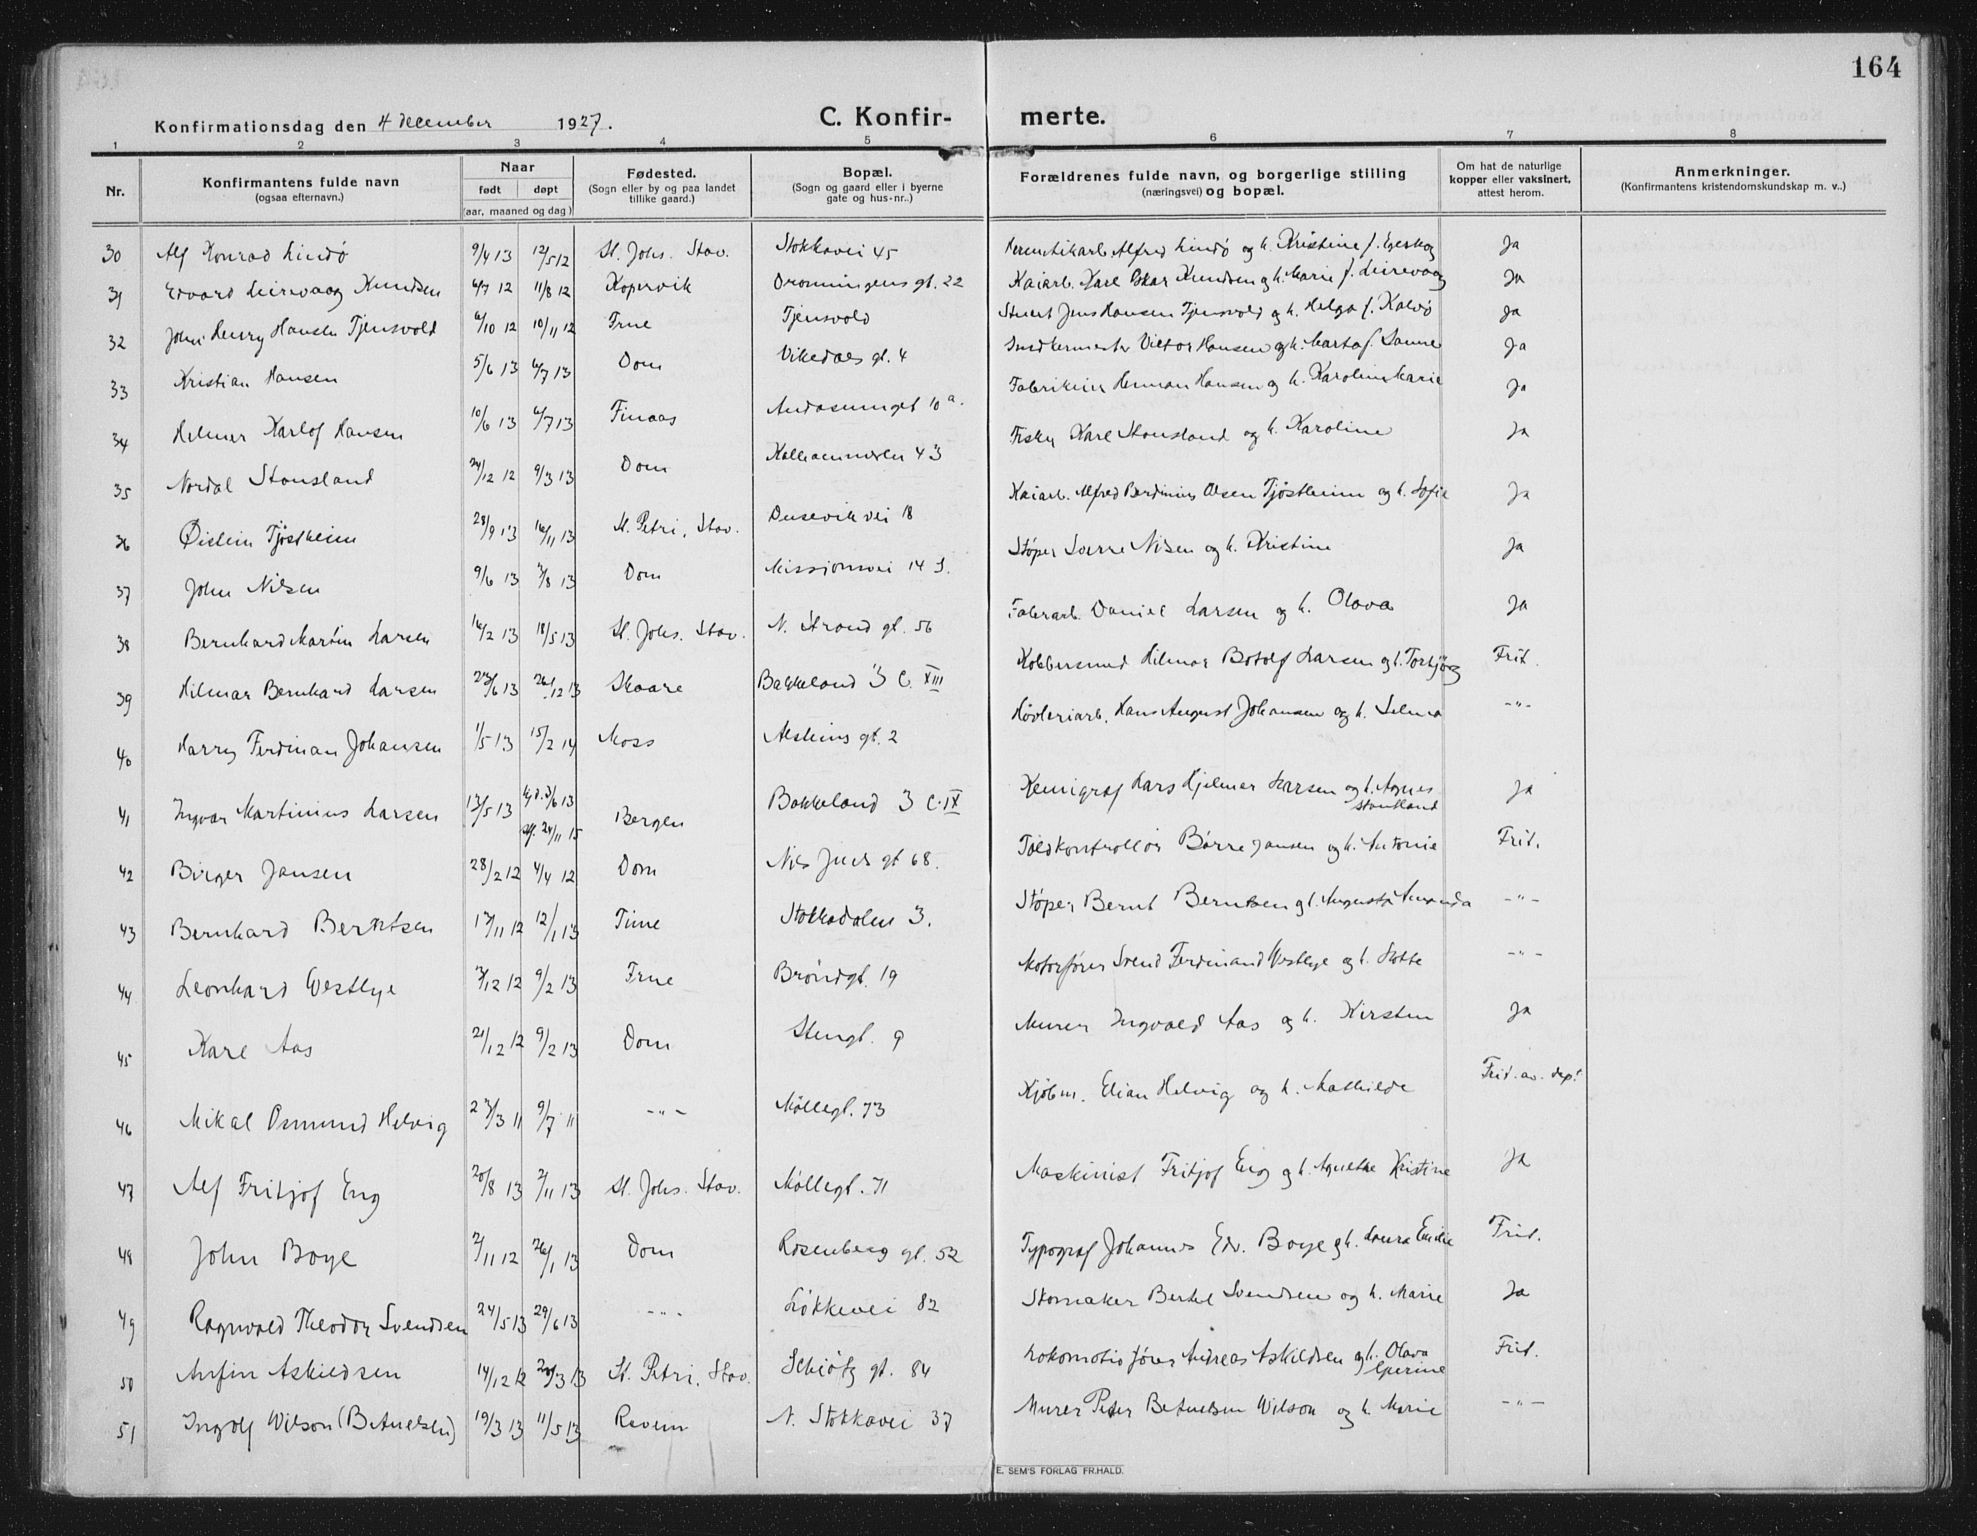 164
Konfirmationsdag den 4 december 1927.
C. Konfirmerte.
1 2 3 4 5 6 7 8
Nr.
Konfirmantens fulde navn
(ogsaa efternavn.)
Naar
født døpt
(aar, maaned og dag)
Fødested.
(Sogn eller by og paa landet
tillike gaard.)
Bopæl.
(Sogn og gaard eller i byerne
gate og hus-nr..)
Forældrenes fulde navn, og borgerlige stilling
(næringsvei) og bopæl.
Om hat de naturlige
kopper eller vaksinert,
attest herom.
Anmerkninger.
(Konfirmantens kristendomskundskap m. v..)
30 Alf Konrad Lindø 9/4 13 12/5 12 St. Johs. Stav. Stokkavei 45 Alfred Lindø og h. Kristine f. Egeskog Ja
31 Edvard Leirevaag Knudsen 6/7 12 11/8 12 Kopervik Dronningens gt. 22 Kaiarb. Karl Oskar Knudsen og h. Marie f. Leirevaag Ja
32 John Henry Hansen Tjensvold 6/10 12 10/11 12 Frue Tjensvold Stuert Jens Hansen Tjensvold og h. Helga f. Kalvø Ja
33 Kristian Hansen 5/6 13 6/7 13 Dom Vikedals gt. 4 Snedkermester Viktor Hansen og h. Marta f. Sanne Ja
34 Helmer Karlof Hansen 10/6 13 6/7 13 Finaas 10 a. Herman Hansen og h. Karoline Marie Ja
35 Nordal Stousland 24/12 12 9/3 13 Dom 43 Fisker Karl Stousland og h. Karoline Ja
36 Øistein Tjøstheim 28/9 13 16/11 13 St. Petri, Stav. Dusevik vei 18 Kaiarb. Alfred Berdinius Olsen Tjøstheim og h. Sofie Ja
37 John Nilsen 9/6 13 3/8 13 Dom Missionsvei 14 Støper Nilsen og h. Kristine Ja
38 Bernhard Martin Larsen 16/2 13 18/5 13 St. Johs. Stav. N. Strand gt. 56 Faberarb. Daniel Larsen og h. Olava Ja
39 Hilmar Bernhard Larsen 23/6 13 26/12 13 Skaare Bakkeland 3 C. XIII Kobbersmed Hilmar Botolf Larsen og h. Torbjørg Frit.
40 Harry Ferdinan Johansen 1/5 13 15/2 14 Moss gt. 2 Høvleriarb. Hans August Johansen og h. Selma -"-
41 Ingvar Martinius Larsen 13/5 13 hj.d. 3/6 13 Bergen Bakkeland 3 C. IX Kemigraf Lars Hjelmer Larsen og h. Agnes Ja
st. 24/11 15 Stousland
42 Birger Jansen 28/2 12 4/4 12 Dom Nils Juels gt 68. Toldkontrollør Børre Jansen og h. Antonie Frit.
43 Bernhard Berntsen 13/11 12 12/1 13 Time Stokkadalen 3. Støper Bernt Berntsen og h. Augusta Amanda -"-
44 Leonhard Westbye 3/12 12 9/2 13 Frue Brøndgt. 19 Motorfører Svend Ferdinand Westbye og h. Lotte -"-
45 Karl Aas 21/12 12 9/2 13 Dom Stengt. 9 Murer Ingvald Aas og h. Kirsten Ja
46 Mikal Osmund Helvig 23/3 11 9/7 11 -"- Møllegt. 73 Kjøbm. Elian Helvig og h. Mathilde Frit. av. dep.
47 Alf Fritjof Eng 20/8 13 2/11 13 St. Johs. Stav. Møllegt. 71 Maskinist Fritjof Eng og h. Agnethe Kristine Ja
48 John Boye 2/11 12 26/1 13 Dom Rosenberg gt. 52 Typograf Johannes Edv. Boye og h. Laura Emilie Frit.
49 Ragnvald Theodor Svendsen 24/5 13 29/6 13 -"- Løkkevei 82 Skomaker Bertel Svendsen og h. Marie Ja
50 Arfin Askildsen 14/12 12 24/3 13 St. Petri, Stav. Schiøtz gt. 84 Lokomotivfører Andreas Askildsen og h. Olava Frit.
Sperine
51 Ingolf Wilson (Betuelsen) 19/3 13 11/5 13 Revem N. Stokkavei 37 Murer Peder Betuelsen Wilson og h. Marie -"-
E. SEM'S FORLAG FR.HALD.